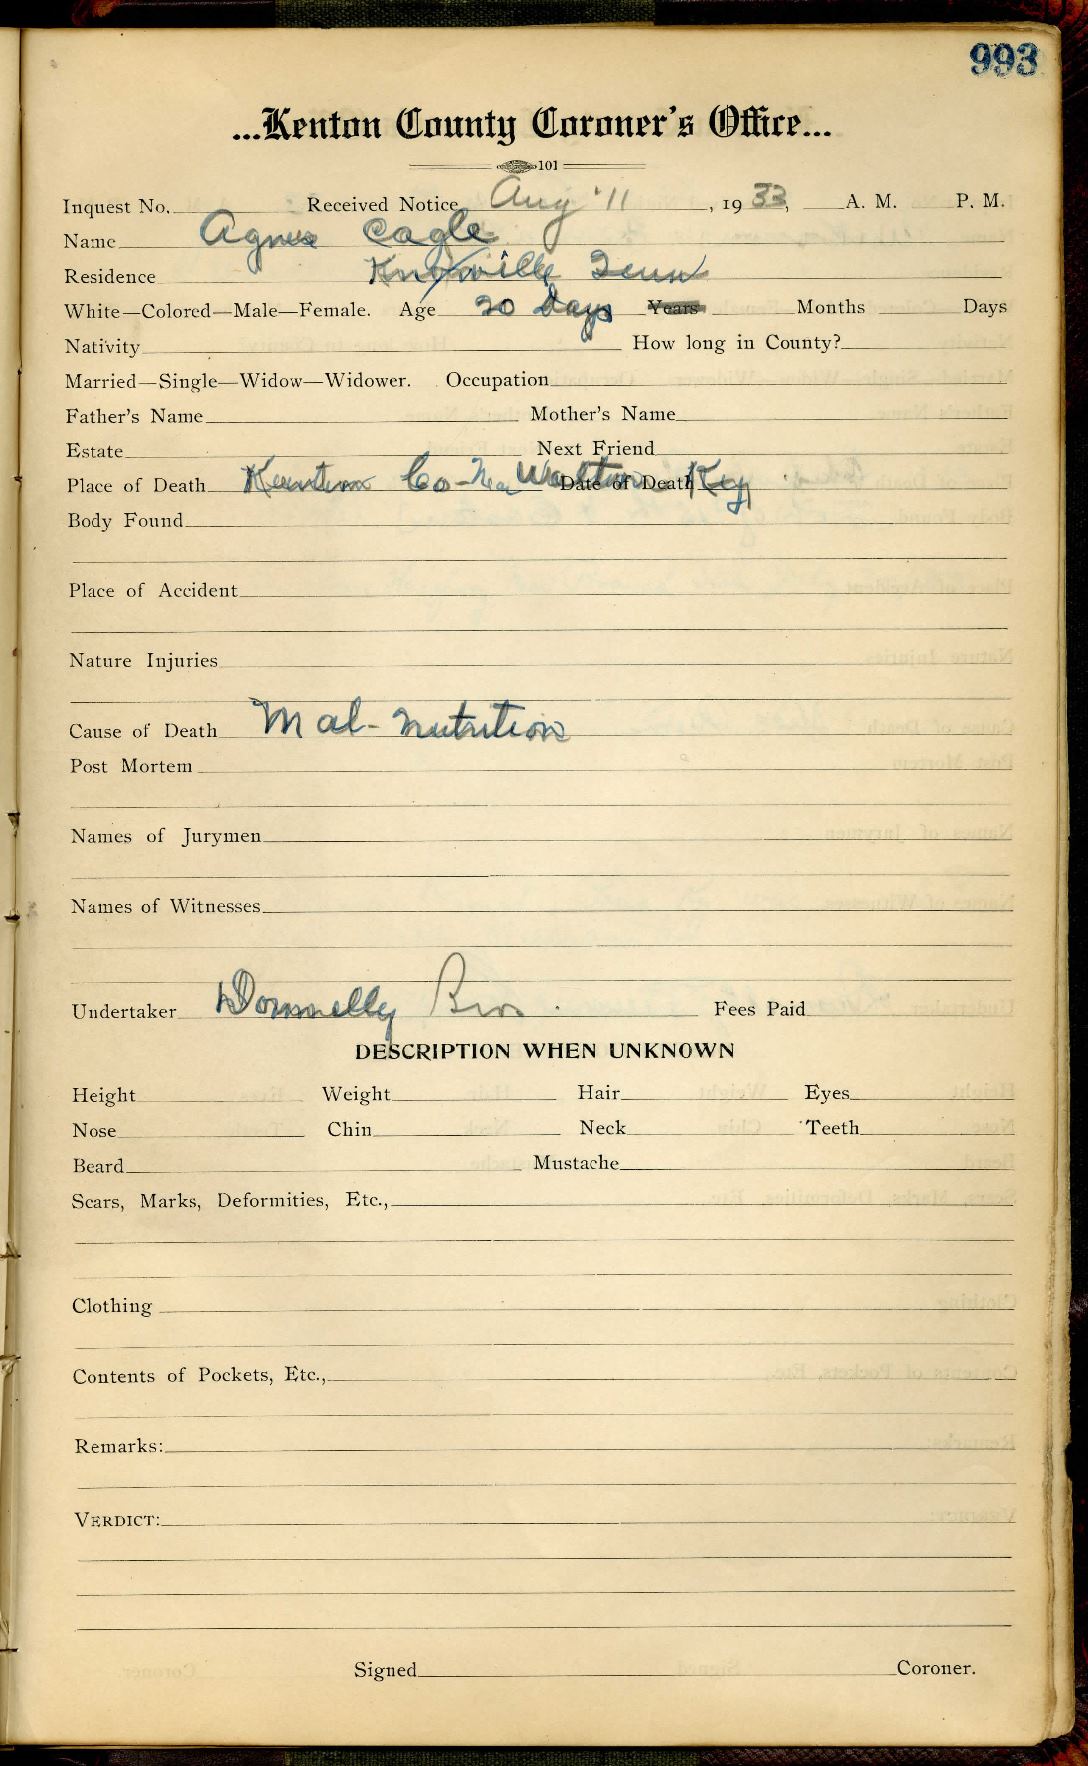 993
...Kenton County Coroner's Office...
101
Inquest No. Received Notice Aug '11, 1933, A. M. P. M.
Name Agnes Cagle
Residence Knoxville Tenn
White—Colored—Male—Female. Age 20 Days Years Months Days
Nativity How long in County?
Married—Single—Widow—Widower. Occupation
Father's Name Mother's Name
Estate Next Friend
Place of Death Kenton Co - Near Walton Date of Death Key
Body Found
Place of Accident
Nature Injuries
Cause of Death Mal-nutrition
Post Mortem
Names of Jurymen
Names of Witnesses
Undertaker Donnelly Bros. Fees Paid
DESCRIPTION WHEN UNKNOWN
Height Weight Hair Eyes
Nose Chin Neck Teeth
Beard Mustache
Scars, Marks, Deformities, Etc.,
Clothing
Contents of Pockets, Etc.,
Remarks:
VERDICT:
Signed Coroner.